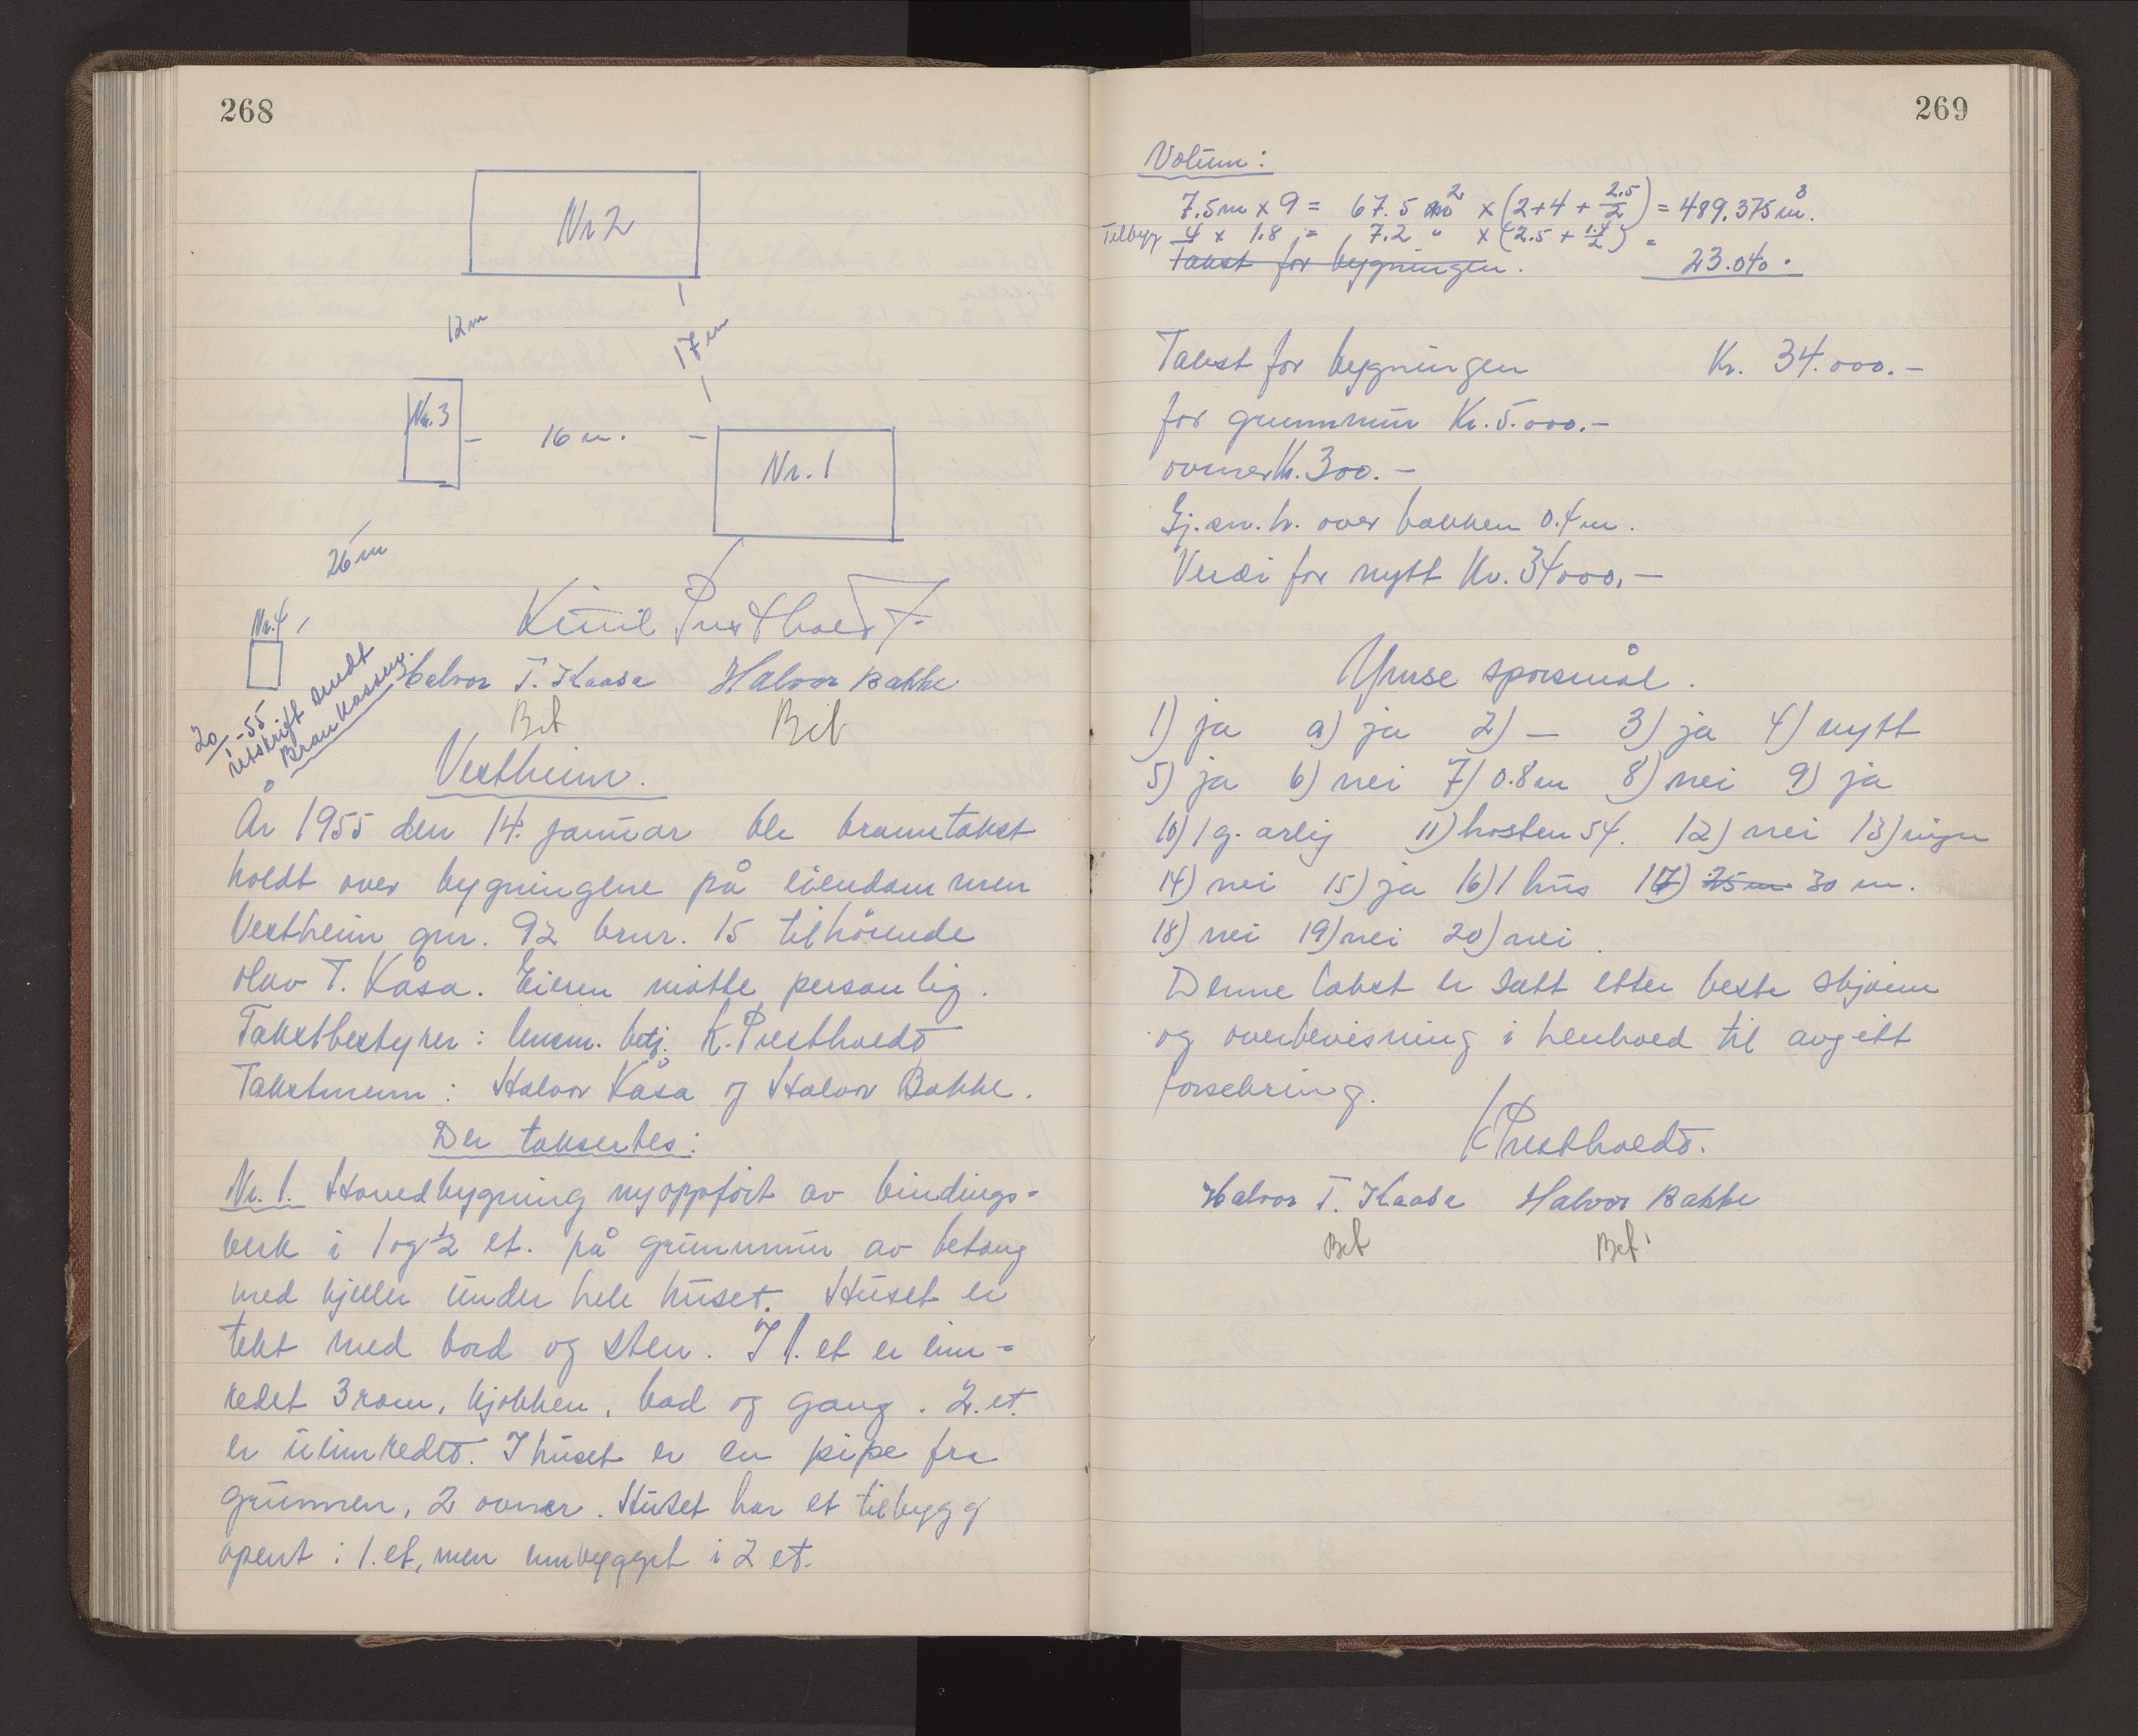 268
Nr 2
12 m
17 m
Nr. 3
16 m.
Nr. 1
26 m
Nr. 4
Halvor T. Kaasa Halvor Bakke
Bet Bet
20/1-55
utskrift sendt
Brannkassen.
Vestheim.
År 1955 den 14. januar ble branntakst
holdt over bygningene på eiendommen
Vestheim gnr. 92 brnr. 15 tilhörende
Olav T. Kåsa. Eieren møtte personlig.
Takstbestyrer: lensm. betj. K. Prestholdt
Takstmenn: Halvor Kåsa og Halvor Bakke.
Der taksertes:
Nr. 1. Hovedbygning nyoppført av bindings-
verk i 1 og 1/2 et. på grunnmur av betong
med kjeller under hele huset. Huset er
tekt med bord og sten. I 1. et er inn-
redet 3 rom, kjøkken, bad og gang. 2. et.
er uinnredet. I huset er en pipe fra
grunnen, 2 ovner. Huset har et tilbygg
åpent i 1. et, men innbygget i 2 et.
269
Volum:
7.5m x 9 = 67.5 m2 x (2+4+2.5/2) = 489.375 m3.
Tilbygg 4 x 1.8 = 7.2 " x (2.5+1.4/2) =
Takst for bygningen. 23.040.
Takst for bygningen Kr. 34.000.-
for grunnmur Kr. 5.000.-
ovner Kr. 300.-
Gj.sn.h. over bakken 0.4 m.
Verdi for nytt Kr. 34000.-
Ymse spørsmål.
1) ja a) ja 2) — 3) ja 4) nytt
5) ja 6) nei 7) 0.8 m 8) nei 9) ja
10) 1 g. årlig 11) høsten 54. 12) nei 13) ingen
14) nei 15) ja 16) 1 hus 17) 25 m. 30 m.
18) nei 19) nei 20) nei.
Denne takst er satt etter beste skjønn
og overbevisning i henhold til avgitt
forsikring.
K Prestholdt.
Halvor T. Kaasa Halvor Bakke
Bet Bet